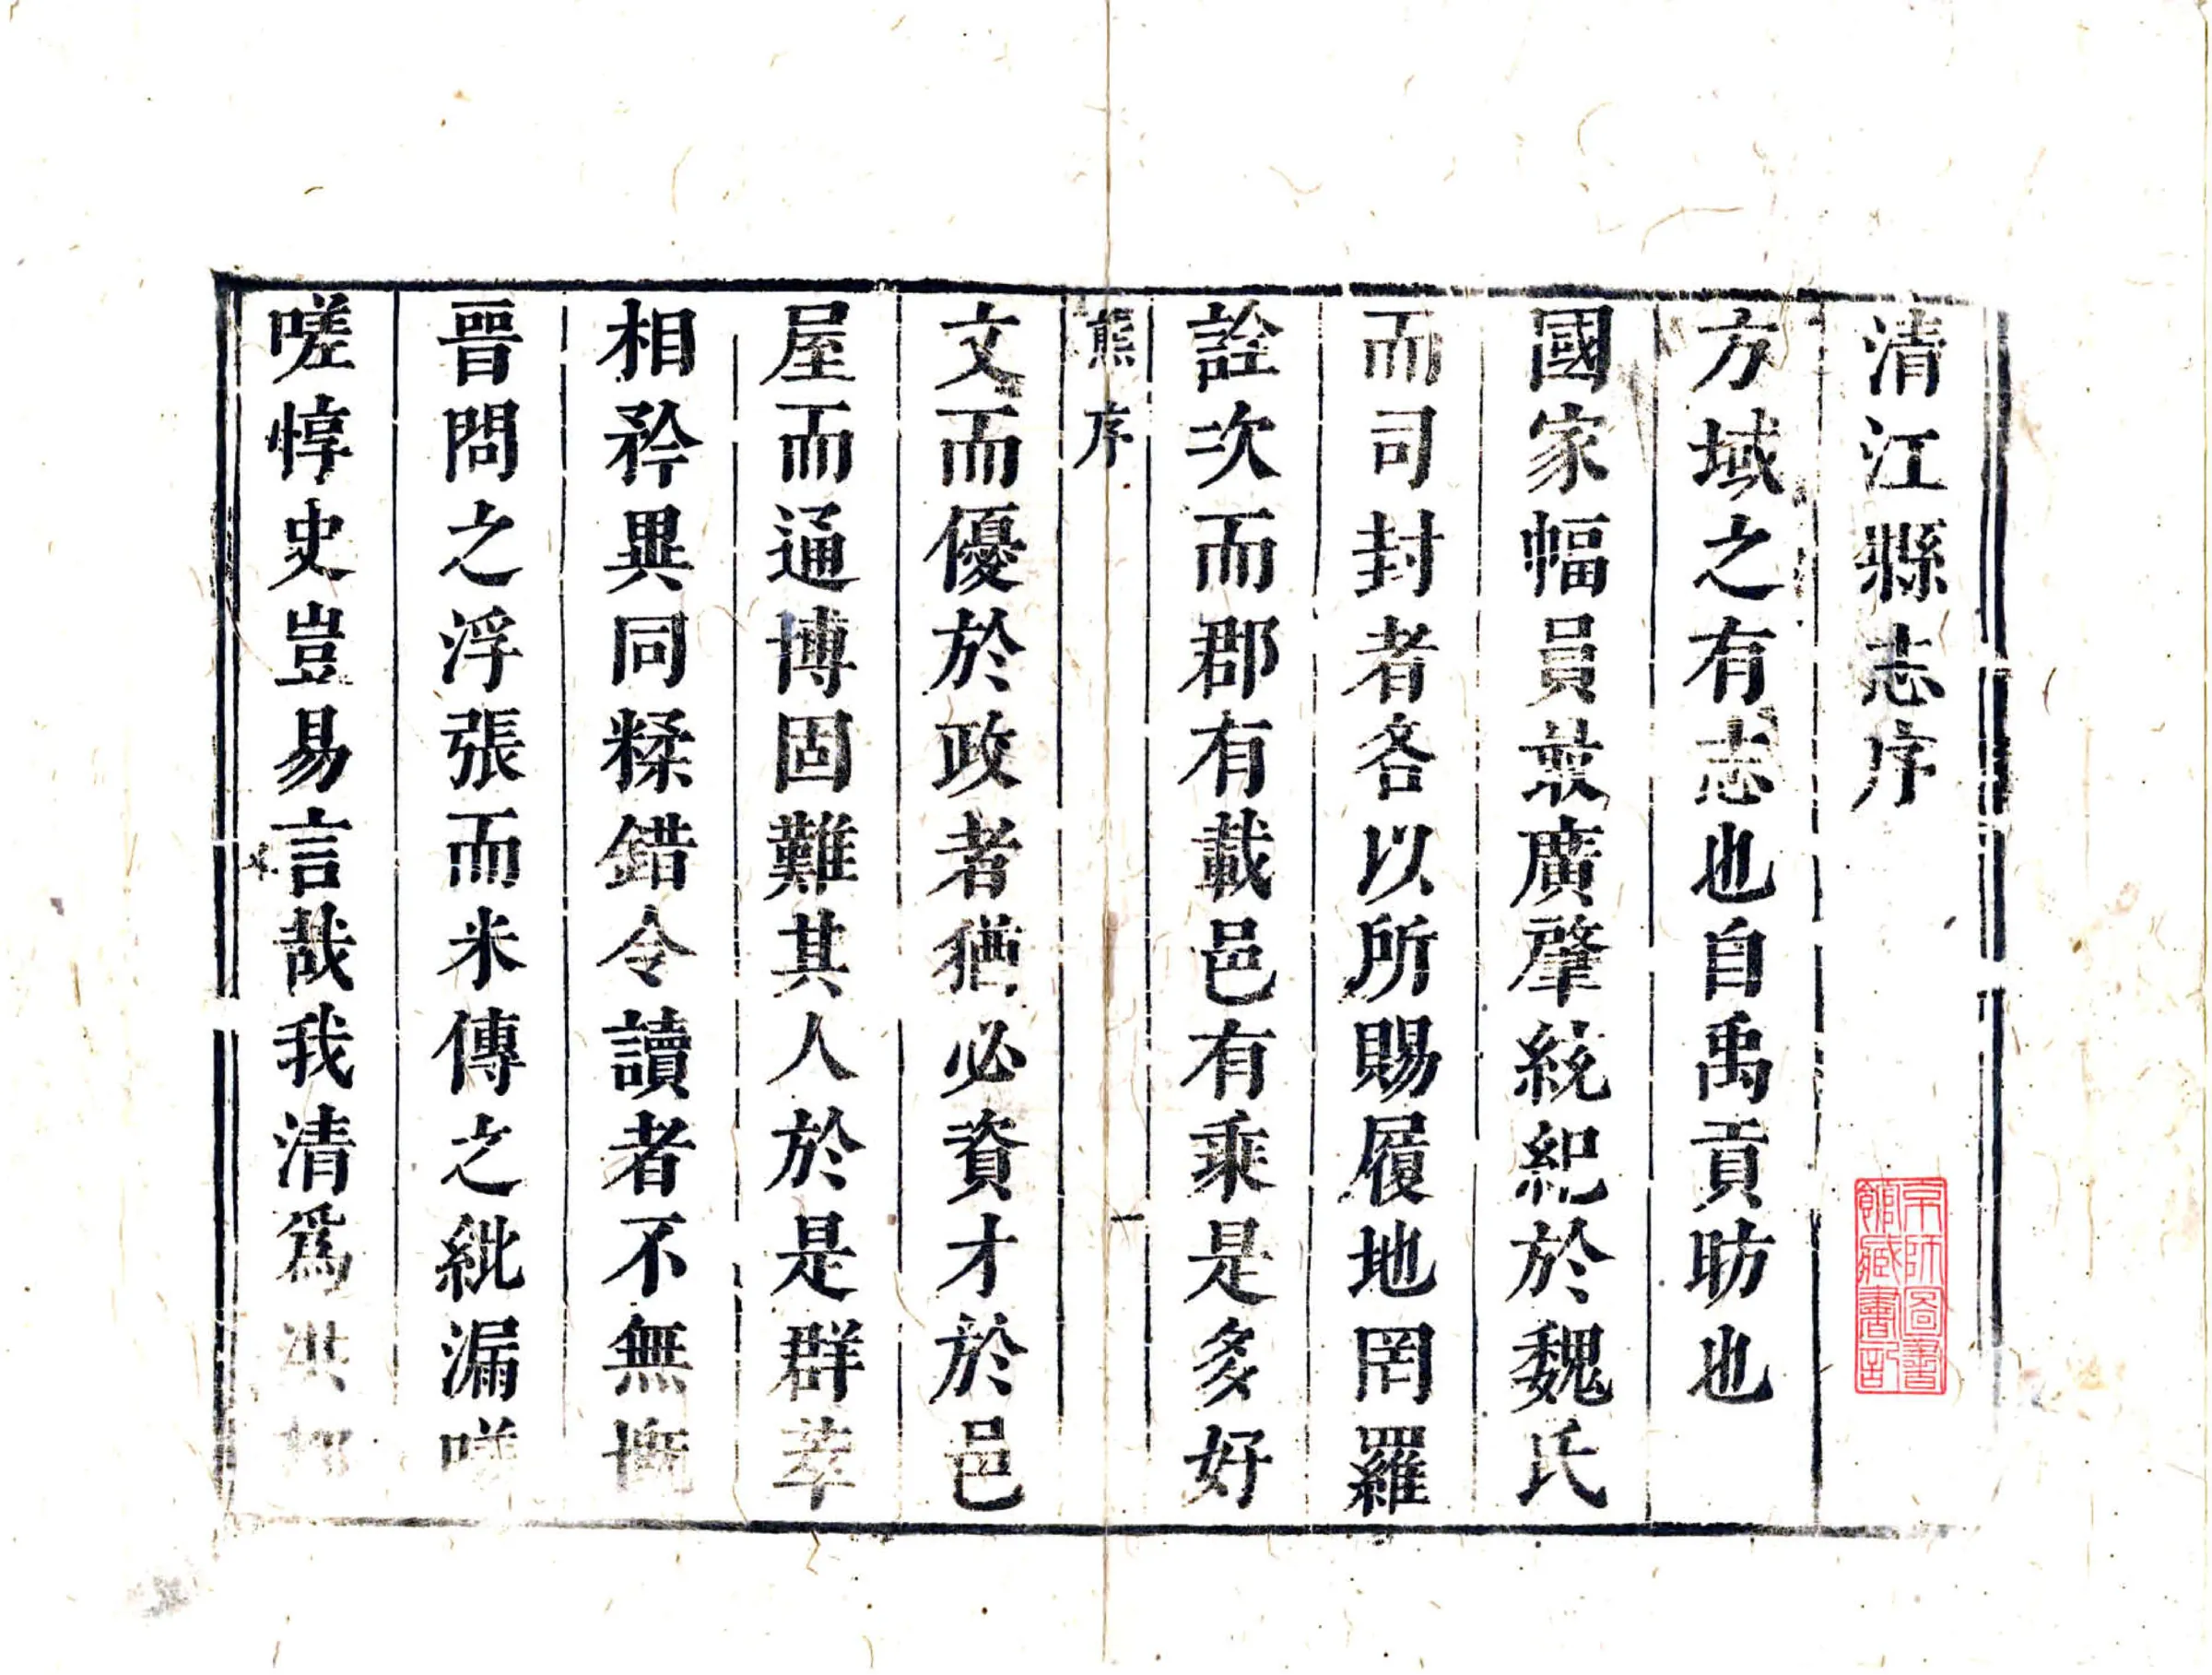 清江縣志序
方域之有志也自禹貢昉也
國家幅員最廣肇統紀於魏氏
而司封者各以所賜履地罔羅
詮次而郡有載邑有乘是多好
熊序
一
文而優於政者猶必資才於邑
屋而通博固難其人於是群萃
相矜異同糅錯令讀者不無慨
晉問之浮張而米傳之紕漏嗟
嗟惇史豈易言哉我清爲
京師圖書
館藏書記